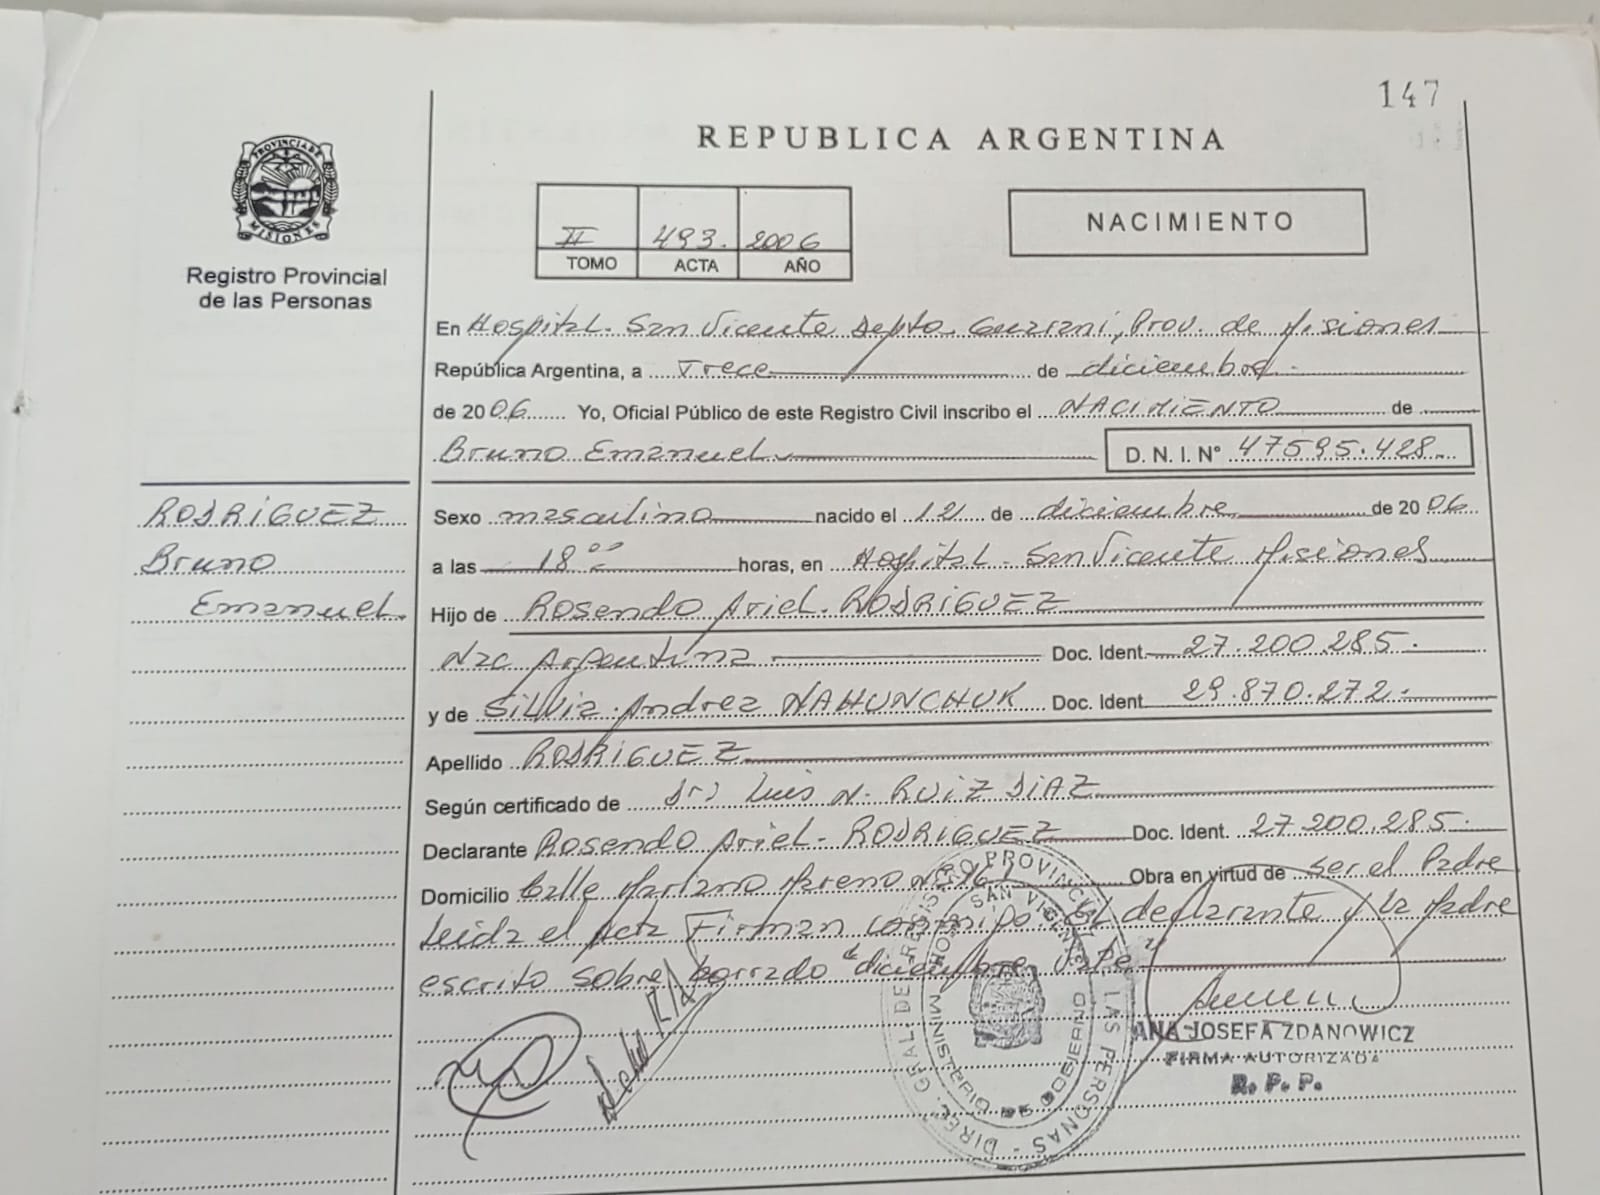 147
REPUBLICA ARGENTINA
PROVINCIA DE
MISIONES
Registro Provincial
de las Personas
II 493. 2006
TOMO ACTA AÑO
NACIMIENTO
En Hospital San Vicente Depto. Guaraní, Prov. de Misiones
República Argentina, a Trece de diciembre
de 2006 Yo, Oficial Público de este Registro Civil inscribo el NACIMIENTO de
Bruno Emanuel D. N. I. N° 47595.428
RODRIGUEZ
Bruno
Emanuel
Sexo masculino nacido el 12 de diciembre de 2006
a las 18 00 horas, en Hospital San Vicente Misiones
Hijo de Rosendo Ariel RODRIGUEZ
Nac Argentina Doc. Ident. 27.200.285.
y de Silvia Andrea NAHUNCHUK Doc. Ident. 29.870.272.
Apellido RODRIGUEZ
Según certificado de Dr) Luis N. RUIZ DIAZ
Declarante Rosendo Ariel RODRIGUEZ Doc. Ident. 27.200.285.
Domicilio Calle Mariano Moreno Obra en virtud de ser el Padre
Leida el Acta Firman conmigo El declarante y la Madre
escrito sobre borrado "diciembre" Vale
DIREC. GRAL. DE REGISTRO PROVINCIAL DE LAS PERSONAS
SAN VICENTE
MINISTERIO DE GOBIERNO
ANA JOSEFA ZDANOWICZ
FIRMA AUTORIZADA
R. P. P.